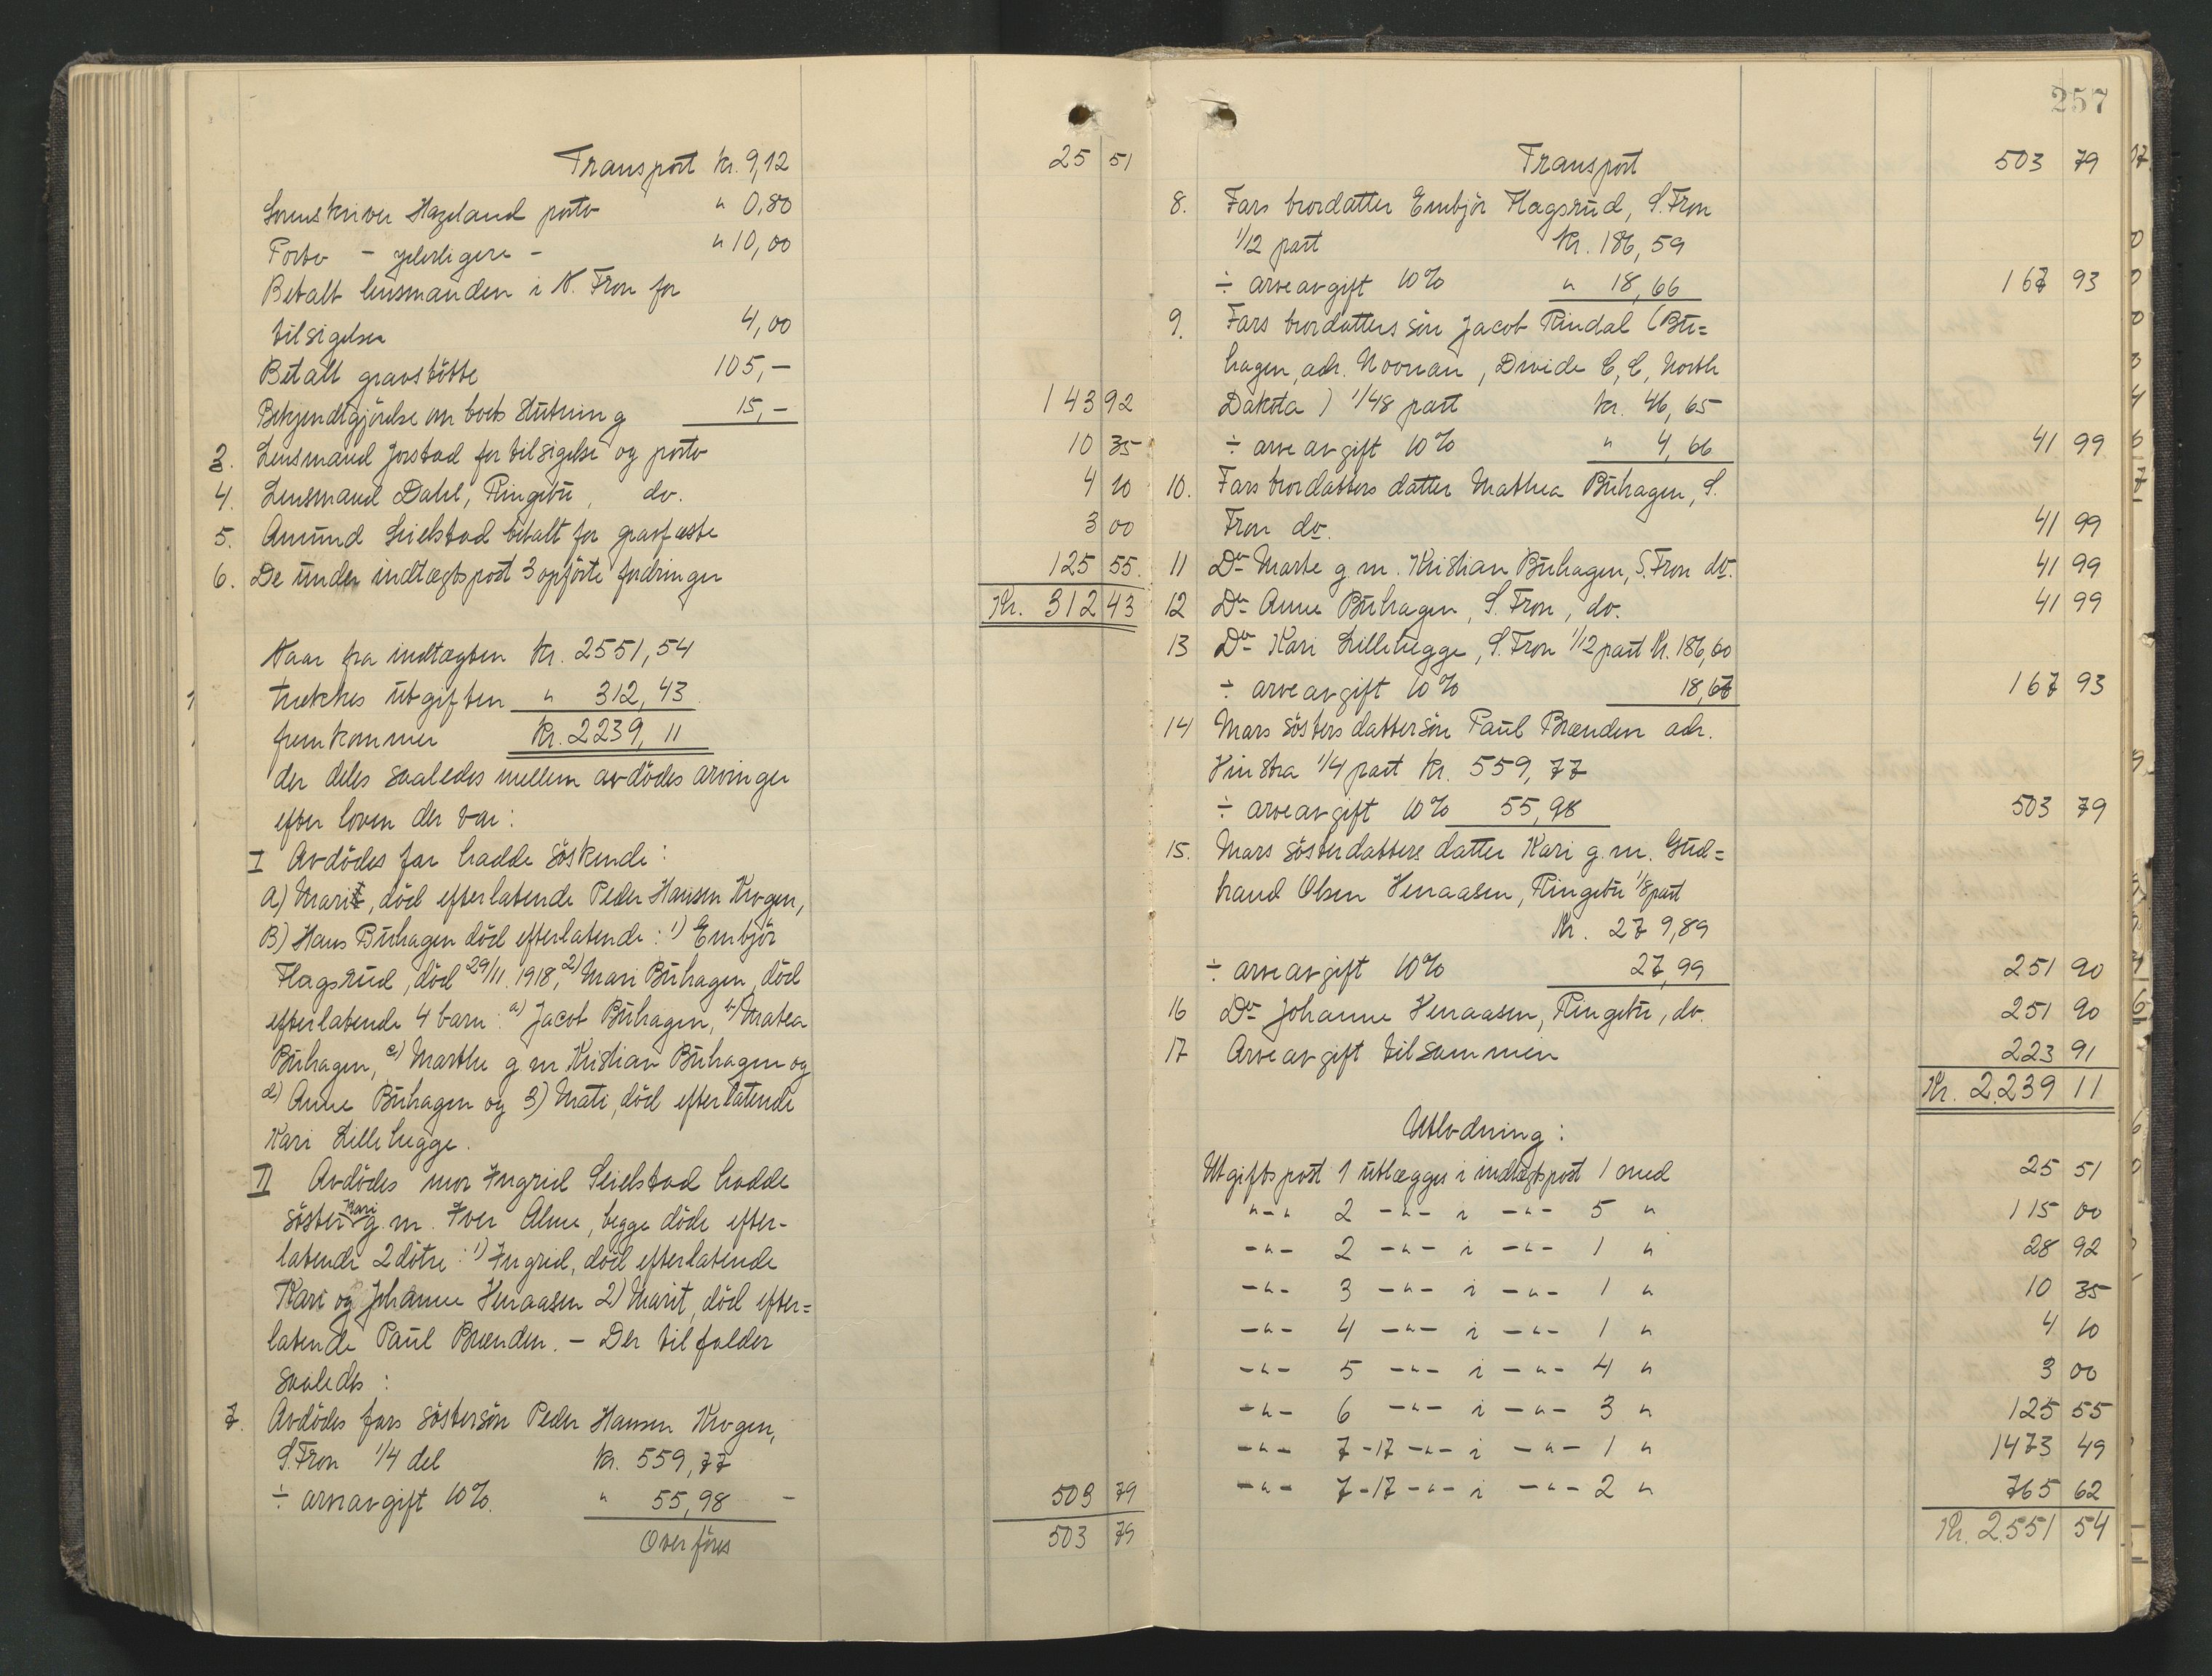 Transport kr. 9,12 25 51
Sorenskriver Hazeland porto " 0,80
Porto - yderligere - " 10,00
Betalt lensmanden i N. Fron for
tilsigelser 4,00
Betalt gravstötte 105,-
Bekjendtgjörelse om boets slutning 15,- 143 92
3. Lensmand Jorstad for tilsigelse og porto 10 35
4. Lensmand Dahl, Ringebu, do. 4 10
5. Amund Seielstad betalt for gravfæste 3 00
6. De under indtægtspost 3 opförte fordringer 125 55
Kr. 312 43
Naar fra indtægten kr. 2551,54
trækkes utgiften " 312,43
fremkommer Kr. 2239,11
der deles saaledes mellem avdödes arvinger
efter loven der var:
I Avdödes far hadde söskende:
A) Marit, död efterlatende Peder Hansen Krogen,
B) Hans Buhagen död efterlatende: 1) Embjör
Flagsrud, död 29/11 1918, 2) Mari Buhagen, död
efterlatende 4 barn: a) Jacob Buhagen, b) Matea
Buhagen, c) Marthe g m Kristian Buhagen og
d) Anne Buhagen og 3) Mati, död efterlatende
Kari Lillehegge.
II Avdödes mor Ingrid Seielstad hadde
söster Kari g.m. Iver Alme, begge döde efter-
latende 2 dötre: 1) Ingrid, död efterlatende
Kari og Johanne Henaasen 2) Marit, död efter=
latende Paul Brænden. - Der tilfalder
saaledes:
7. Avdödes fars söstersön Peder Hansen Krogen,
S. Fron 1/4 del kr. 559,77
÷ arveavgift 10%. " 55,98 - 503 79
Overföres 503 79
257
Transport 503 79
8. Fars brordatter Embjör Flagsrud, S. Fron
1/12 part Kr. 186,59
÷ arveavgift 10% " 18,66 167 93
9. Fars brordatters sön Jacob Rindal (Bu=
hagen, adr. Noonan, Divide C, C, North
Dakota) 1/48 part kr. 46,65
÷ arveavgift 10% " 4,66 41 99
10. Fars brordatters datter Mathea Buhagen, S.
Fron do. 41 99
11 Do Marte g.m. Kristian Buhagen, S. Fron do. 41 99
12 Do Anne Buhagen, S. Fron, do. 41 99
13 Do Kari Lillehegge, S. Fron 1/12 part Kr. 186,60
÷ arveavgift 10% 18,67 167 93
14 Mors sösters dattersön Paul Brænden adr.
Vinstra 1/4 part kr. 559,77
÷ arveavgift 10% 55,98 503 79
15. Mors sösterdatters datter Kari g.m. Gud=
brand Olsen Henaasen, Ringebu 1/8 part
Kr. 279,89
÷ arveavgift 10% 27,99 251 90
16 Do Johanne Henaasen, Ringebu, do. 251 90
17 Arveavgift tilsammen 223 91
Kr. 2.239 11
Utlodning:
Utgiftspost 1 utlægges i indtægtspost 1 med 25 51
-"- 2 -"- i -"- 5 " 115 00
-"- 2 -"- i -"- 1 " 28 92
-"- 3 -"- i -"- 1 " 10 35
-"- 4 -"- i -"- 1 " 4 10
-"- 5 -"- i -"- 4 " 3 00
-"- 6 -"- i -"- 3 " 125 55
-"- 7-17 -"- i -"- 1 " 1473 49
-"- 7-17 -"- i -"- 2 " 765 62
Kr. 2.551 54